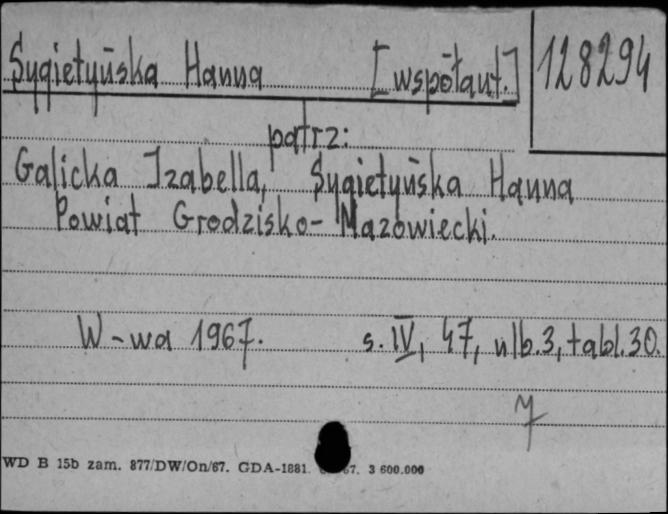 Sygietyńska Hanna [współaut.] 128294
patrz:
Galicka Izabella, Sygietyńska Hanna
Powiat Grodzisko-Mazowiecki.
W-wa 1967. s. IV, 47, nlb.3, tabl.30.
WD B 15b zam. 877/DW/On/67. GDA-1881. 67. 3 600.000